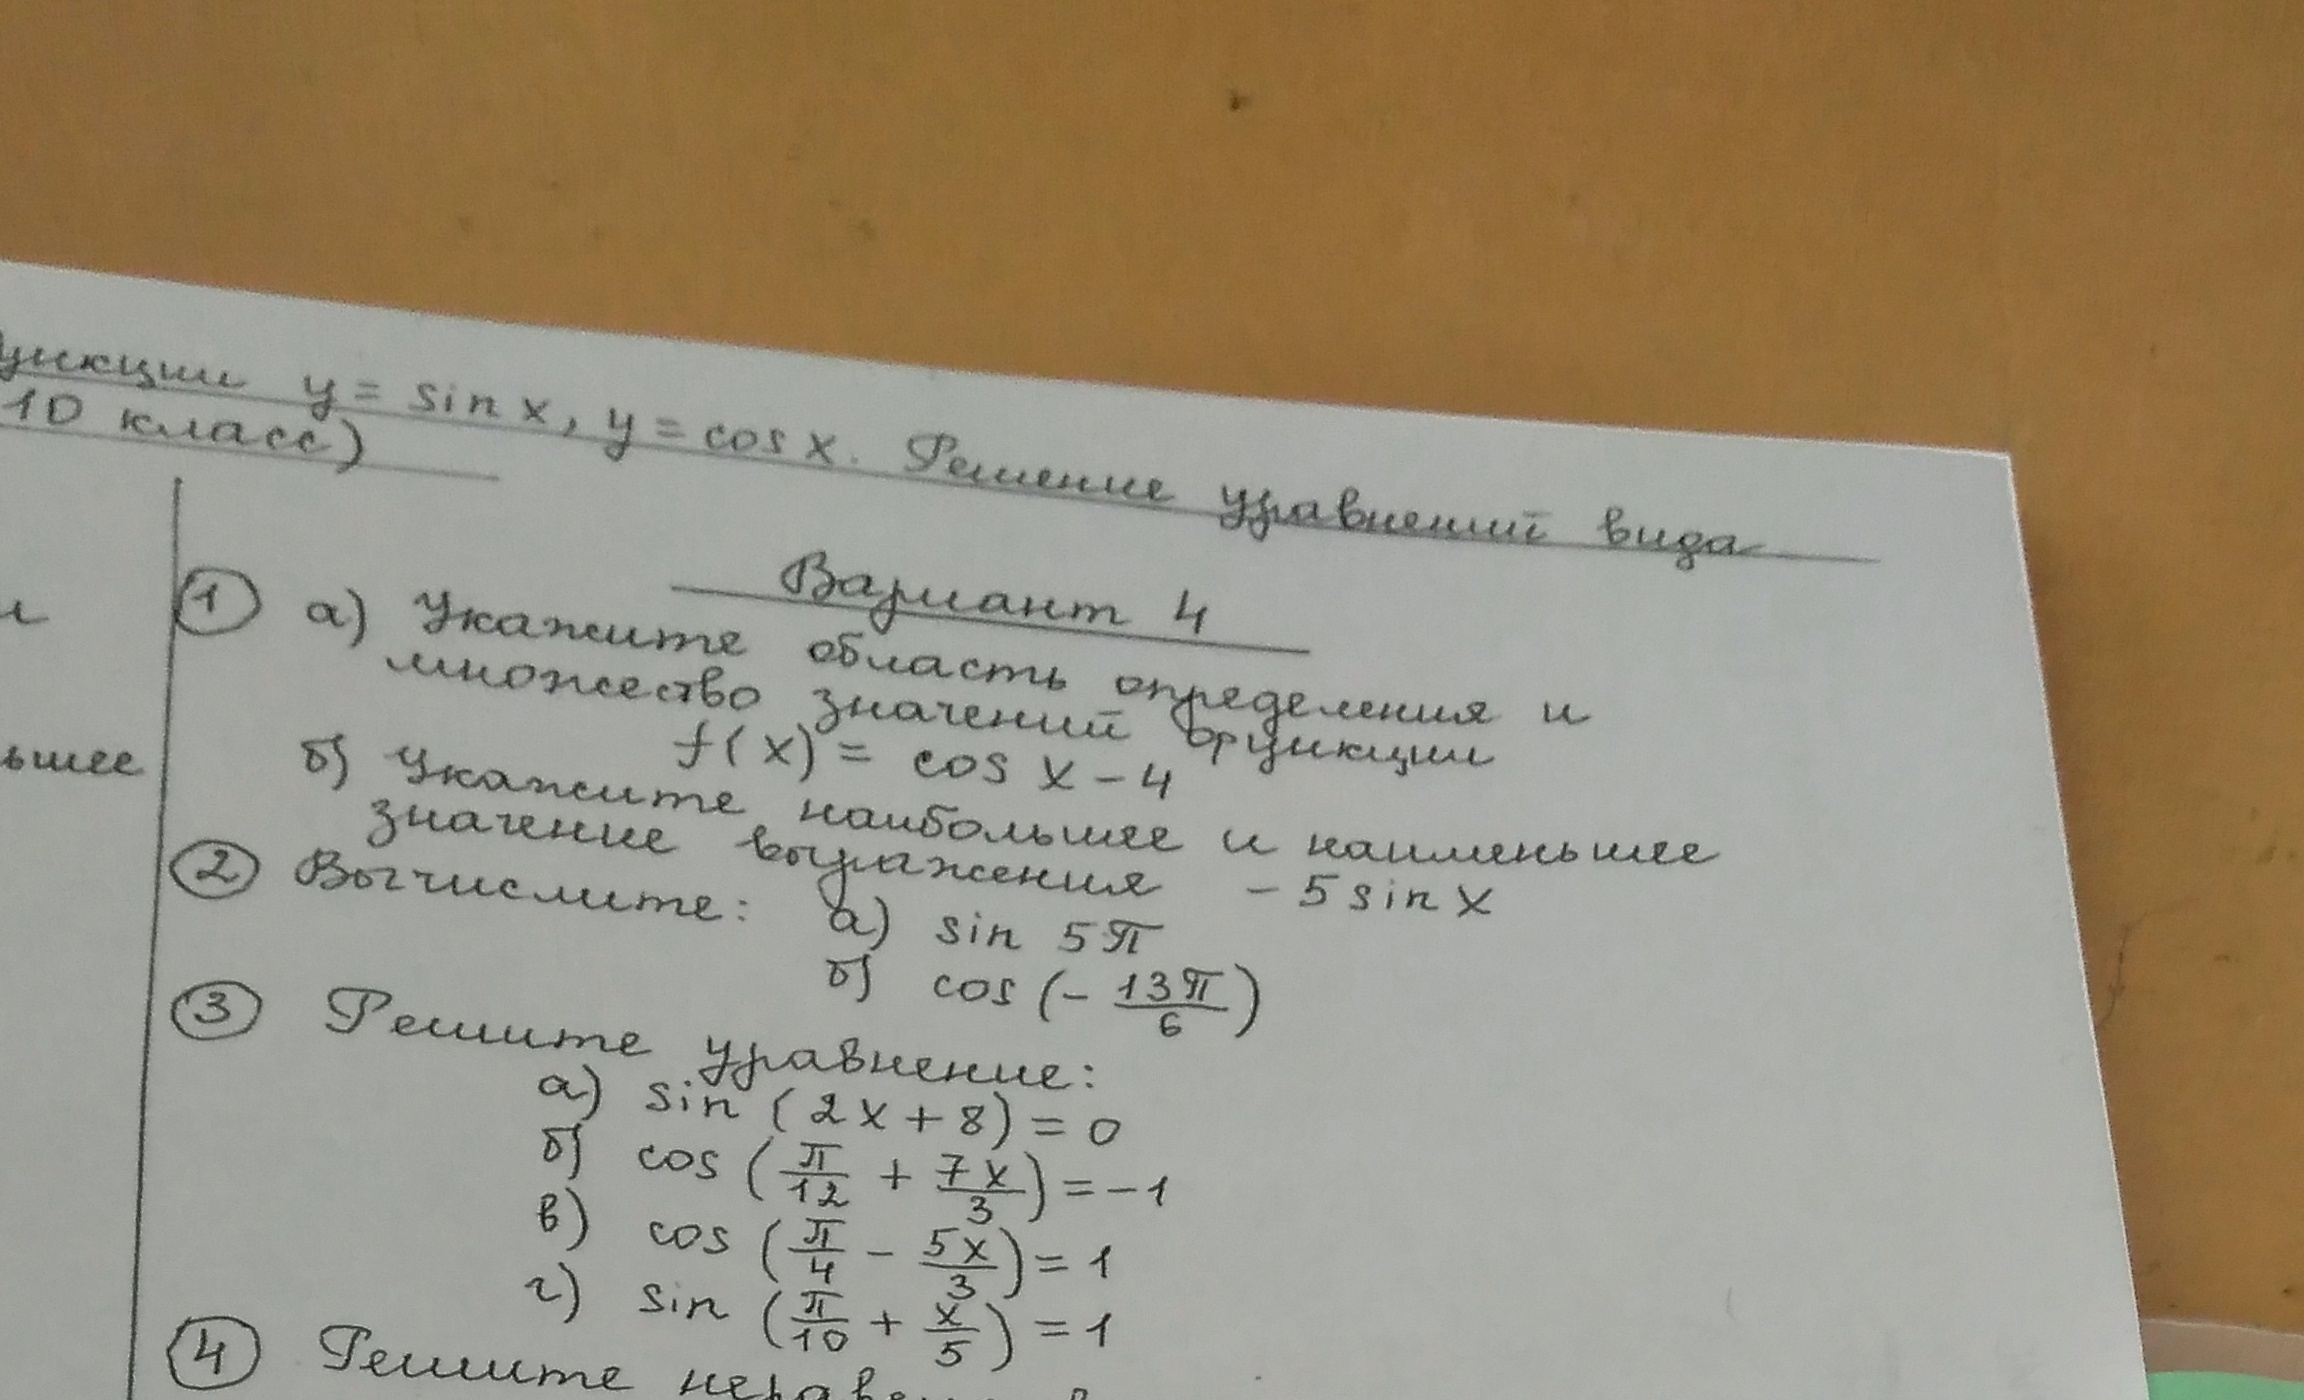 функции y = sin x, y = cos x. Решение уравнений вида
(10 класс)
Вариант 4
ьшее
① а) Укажите область определения и
множество значений функции
f(x) = cos x - 4
б) Укажите наибольшее и наименьшее
значение выражения - 5 sin x
② Вычислите: а) sin 5π
б) cos (- 13π/6)
③ Решите уравнение:
а) sin (2x + 8) = 0
б) cos (π/12 + 7x/3) = -1
в) cos (π/4 - 5x/3) = 1
г) sin (π/10 + x/5) = 1
④ Решите